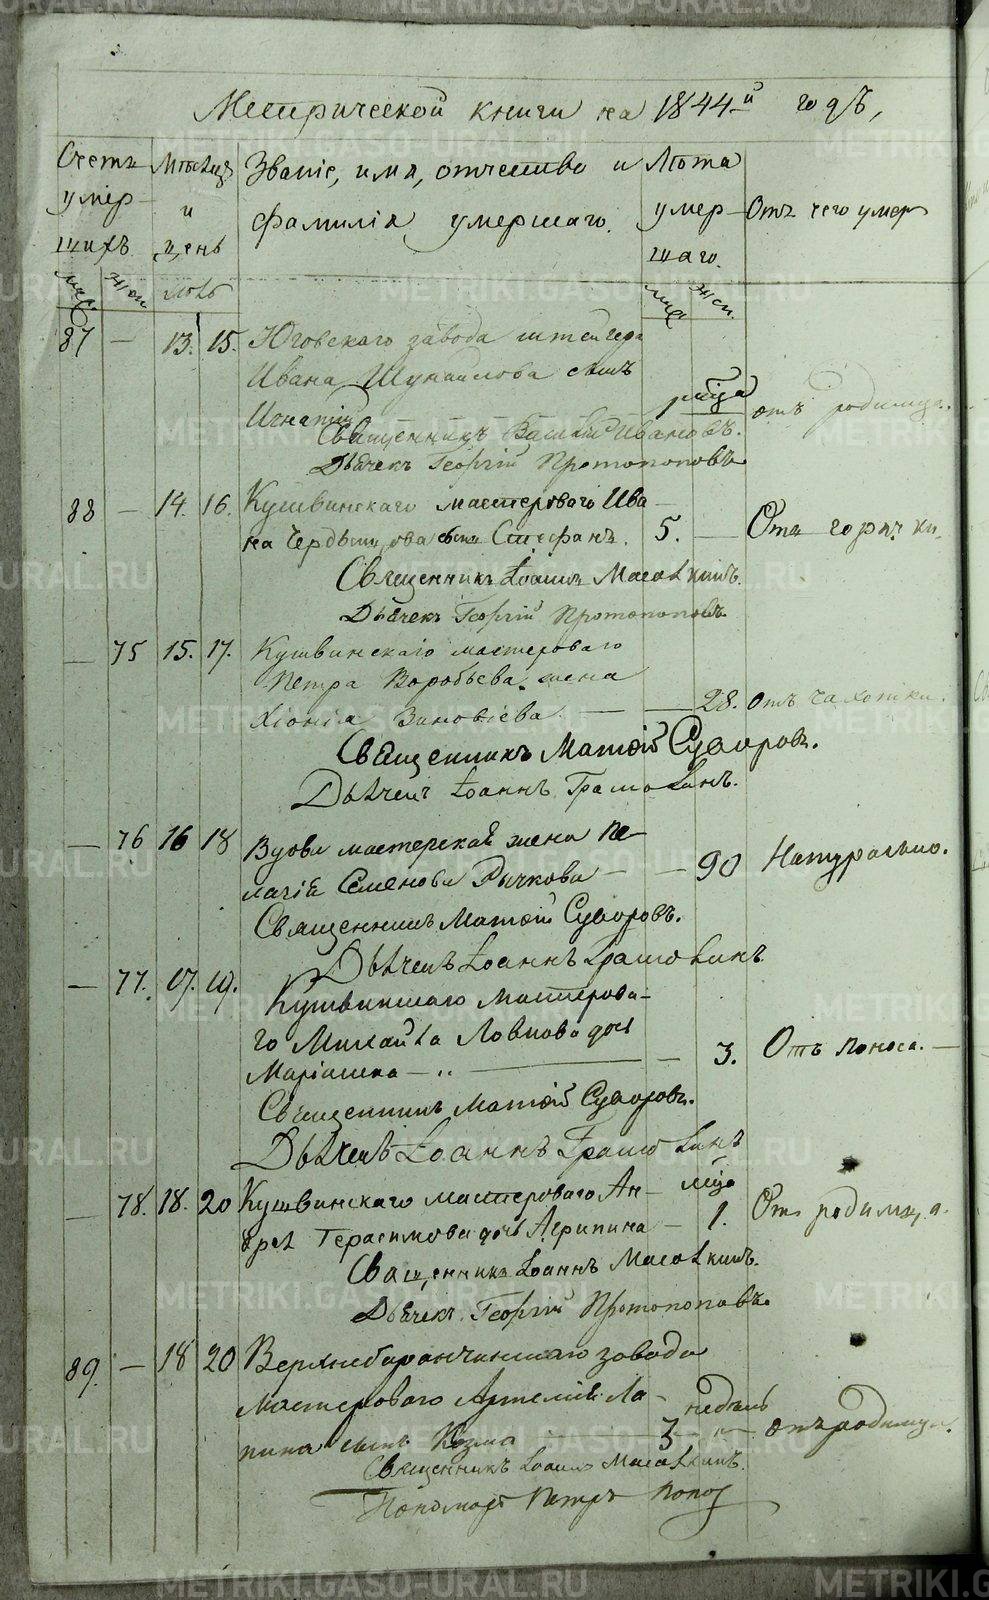 Метрической книги на 1844-й годъ,
Счетъ умершихъ
Мѣсяцъ и день
Званіе, имя, отчество и фамилія умершаго.
Лѣта умершаго.
Отъ чего умеръ
муж. жен.
муж. жен.
87 — 13. 15. Юговскаго завода штейгера
Ивана сынъ
Игнатій 1 мѣсяца отъ родимца.
Священникъ Василій Ивановъ.
Дьячекъ Георгій Протопоповъ
88 — 14. 16. Кушвинскаго мастероваго Ива-
на сынъ Стефанъ. 5. — Отъ горячки.
Священникъ Іоаннъ
Дьячекъ Георгій Протопоповъ.
— 75 15. 17. Кушвинскаго мастероваго
Петра Воробьева жена
Хіонія Зиновіева — — 28. отъ чахотки.
Священникъ Матѳій Суворовъ.
Дьячекъ Іоаннъ
— 76 16 18 Вдова мастерская жена Пе-
лагія Семенова Рычкова — — 90 Натурально.
Священникъ Матѳій Суворовъ.
Дьячекъ Іоаннъ
— 77. 17. 19. Кушвинскаго мастерова-
го Михайла дочь
Маріамна — — 3. Отъ поноса. —
Священникъ Матѳій Суворовъ.
Дьячекъ Іоаннъ
— 78. 18. 20 Кушвинскаго мастероваго Ан-
дрея Герасимова дочь Агрипина — 1. мѣсяца Отъ родимца.
Священникъ Іоаннъ
Дьячекъ Георгій Протопоповъ.
89. — 18 20 Верхнебаранчинскаго завода
мастероваго Артемія Ла-
пина сынъ Козма 3 недѣль отъ родимца.
Священникъ Іоаннъ
Пономарь Петръ Поповъ
METRIKI.GASO-URAL.RU